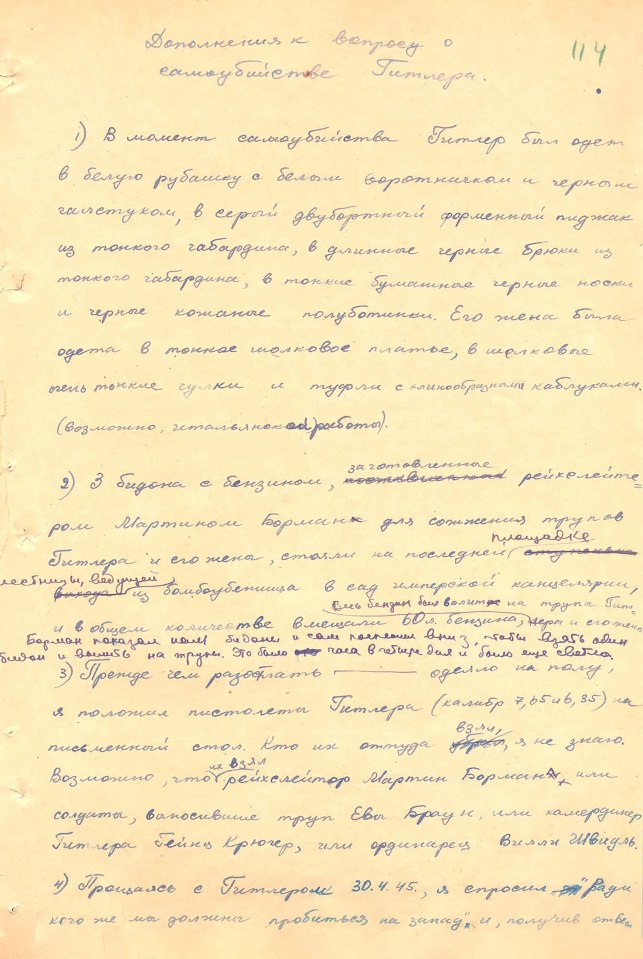 114
Дополнения к вопросу о
самоубийстве Гитлера.
1) В момент самоубийства Гитлер был одет
в белую рубашку с белым воротничком и черным
галстуком, в серый двубортный форменный пиджак
из тонкого габардина, в длинные черные брюки из
тонкого габардина, в тонкие бумажные черные носки
и черные кожаные полуботинки. Его жена была
одета в тонкое шелковое платье, в шелковые
очень тонкие чулки и туфли с клинообразными каблуками.
(возможно, итальянской работы).
заготовленные
2) 3 бидона с бензином, рейхслейте=
ром Мартином Борман для сожжения трупов
площадке
Гитлера и его жены, стояли на последней
лестницы, ведущей
из бомбоубежища в сад имперской канцелярии,
Весь бензин был вылит на трупы Гит-
и в общем количестве вмещали 60 л. бензина, лера и его жены
Борман показал мне бидоны и сам поспешил вниз, чтобы взять один
бидон и вылить на трупы. Это было часа в четыре дня и было еще светло.
3) Прежде чем разостлать ——— одеяло на полу,
я положил пистолеты Гитлера (калибр 7,65 и 6,35) на
взял,
письменный стол. Кто их оттуда , я не знаю.
их взял
Возможно, что рейхслейтор Мартин Борман, или
солдаты, выносившие труп Евы Браун, или камердинер
Гитлера Гейнц Крюгер, или ординарец Вилли Швидль.
4) Прощаясь с Гитлером 30.4.45., я спросил „Ради
кого же мы должны пробиться на запад", и, получив ответ